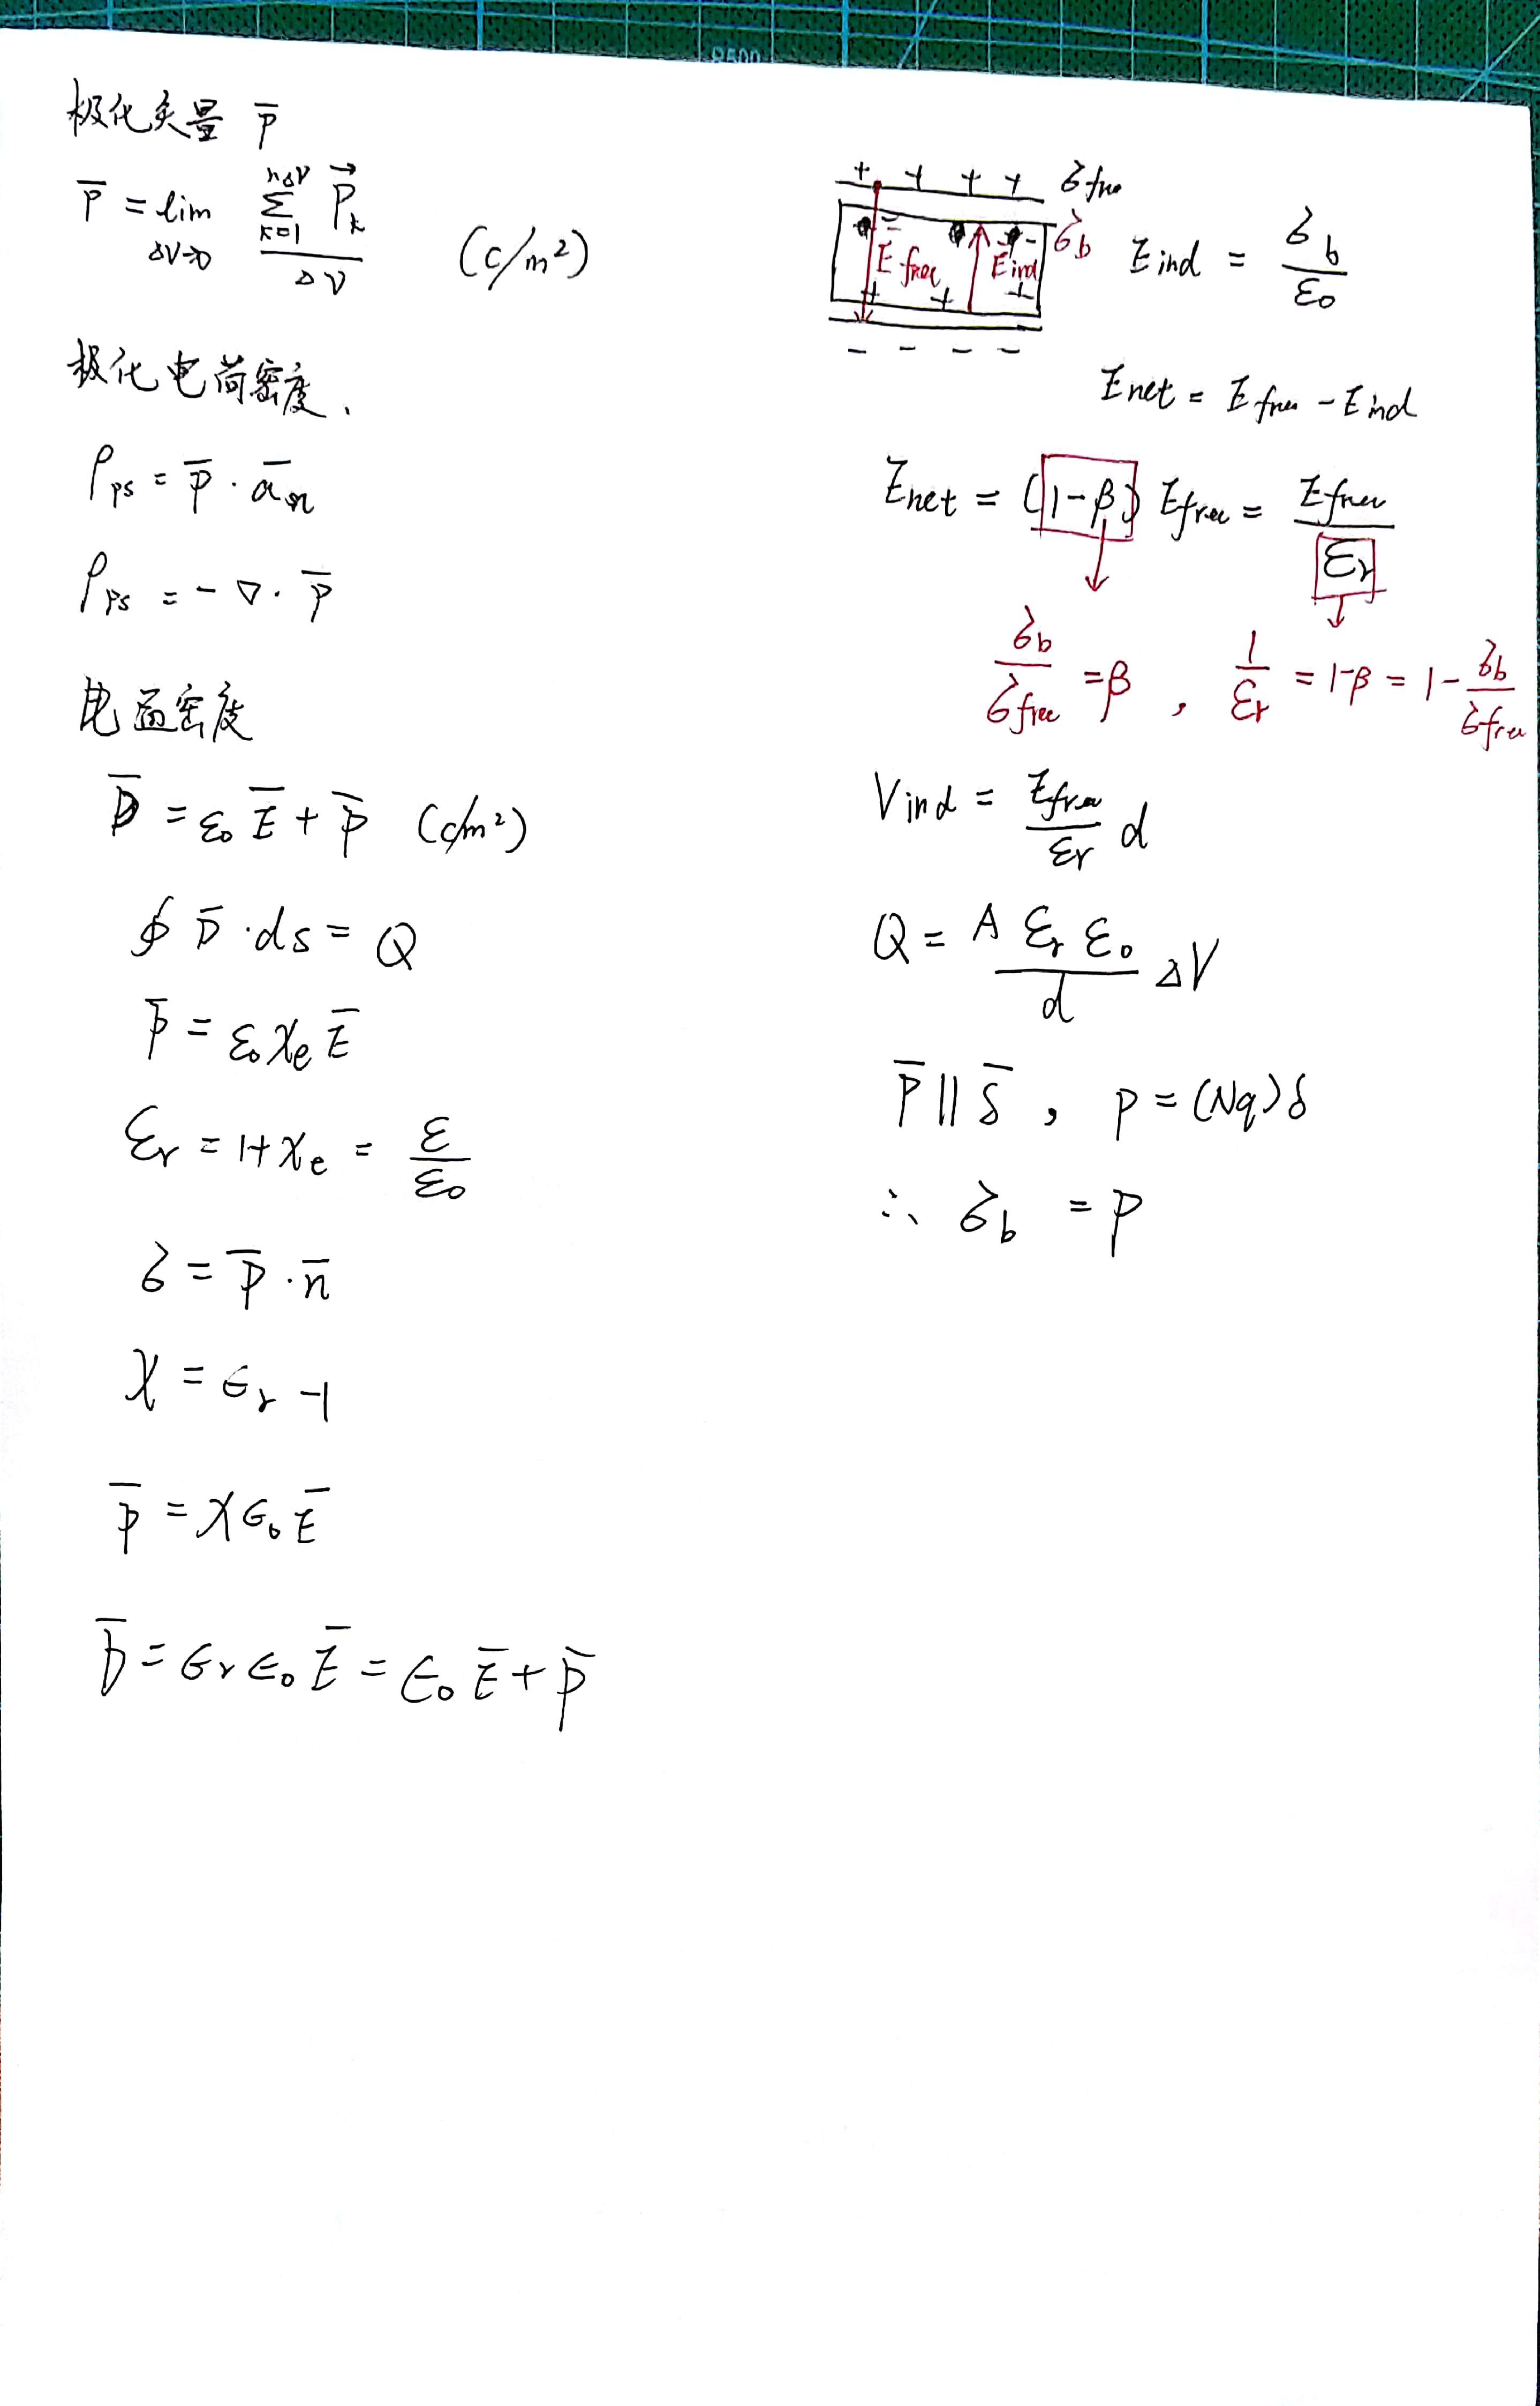 极化矢量 P̅
P̅ = lim ΔV→0 Σ_{k=1}^{nΔV} P⃗_k / ΔV (C/m²)
极化电荷密度、
ρ_ps = P̅ · a̅_n
ρ_ps = - ∇ · P̅
电通密度
D̅ = ε₀ E̅ + P̅ (C/m²)
∮ D̅ · ds = Q
P̅ = ε₀ χ_e E̅
ε_r = 1 + χ_e = ε / ε₀
σ = P̅ · n̅
χ = ϵ_r - 1
P̅ = χ ϵ₀ E̅
D̅ = ϵ_r ϵ₀ E̅ = ϵ₀ E̅ + P̅
+ + + + σ_free
- - - σ_b
E_free E_ind
+ + +
- - - -
E_ind = σ_b / ε₀
E_net = E_free - E_ind
E_net = (1-β) E_free = E_free / ε_r
σ_b / σ_free = β , 1 / ε_r = 1-β = 1 - σ_b / σ_free
V_ind = E_free / ε_r d
Q = A ε_r ε₀ / d ΔV
P̅ ∥ δ̅ , P = (Nq)δ
∴ σ_b = P